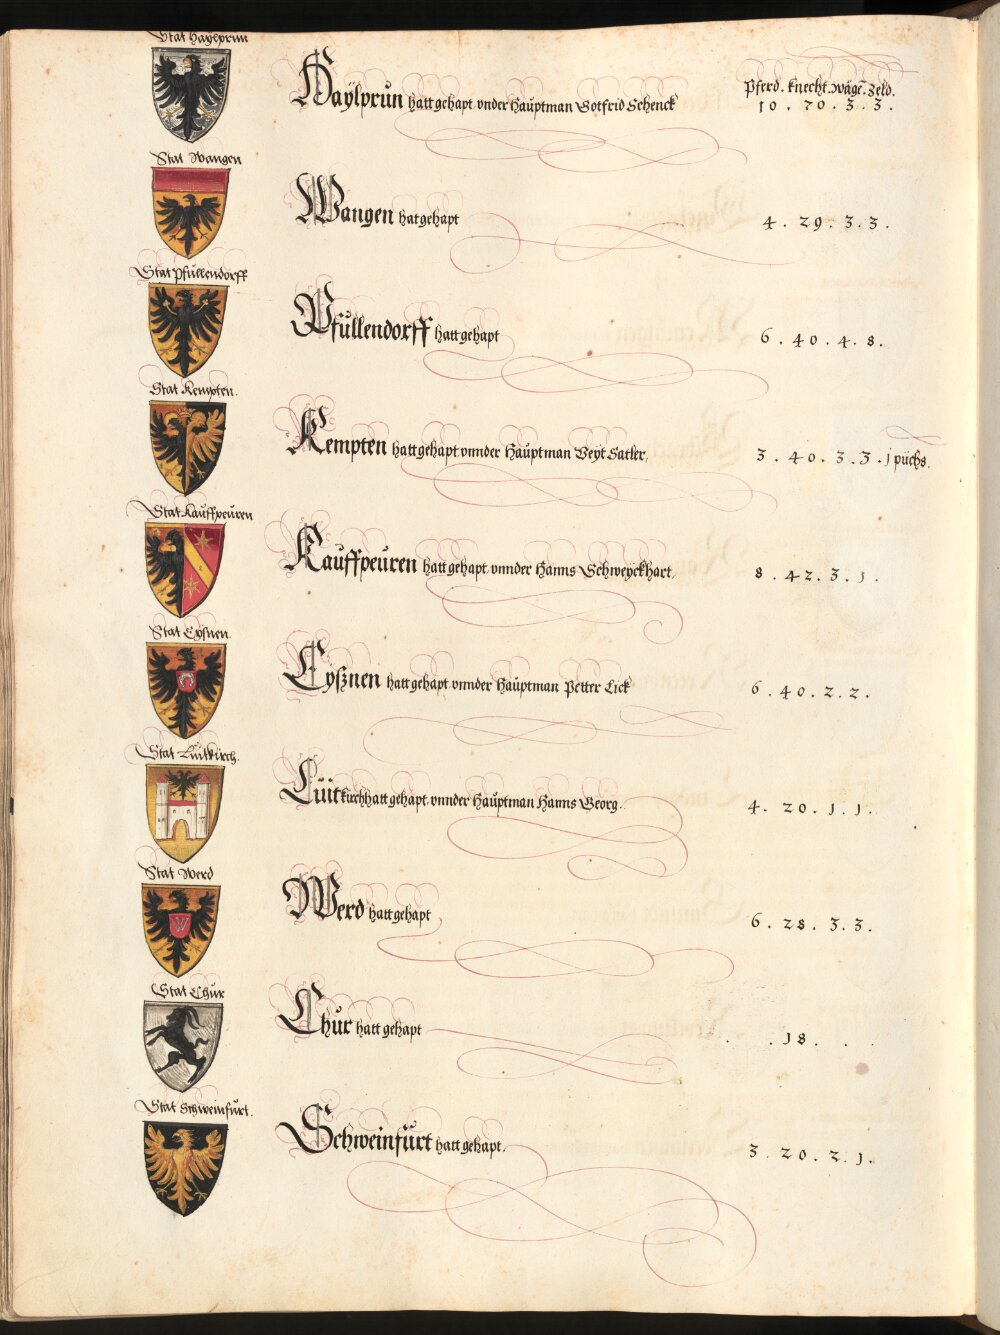 Stat Haylprun
Haÿlprun hatt gehapt vnder Haüptman Gotfrid Schenck
Pferd. knecht. wäge. Zeld.
10 . 70 . 3 . 3 .
Stat Wangen
Wangen hat gehapt
4 . 29 . 3 . 3 .
Stat Pfullendorff
Pfüllendorff hatt gehapt
6 . 40 . 4 . 8 .
Stat Kempten.
Kempten hatt gehapt vnnder Haüptman Veyt Satler,
3 . 40 . 3 . 3 . j püchs.
Stat Kauffpeuren
Kaüffpeüren hatt gehapt vnnder Hanns Schweyckhart,
8 . 42 . 3 . 1 .
Stat Eyßnen
Eyßnen hatt gehapt vnnder Haüptman Petter Lick
6 . 40 . 2 . 2 .
Stat Lütkirch.
Lüitkirch hatt gehapt vnnder Haüptman Hanns Georg.
4 . 20 . 1 . 1 .
Stat Werd
W
Werd hatt gehapt
6 . 28 . 3 . 3 .
Stat Chur
Chür hatt gehapt
. . 18 . . .
Stat Schweinfurt.
Schweinfürt hatt gehapt.
3 . 20 . 2 . 1 .